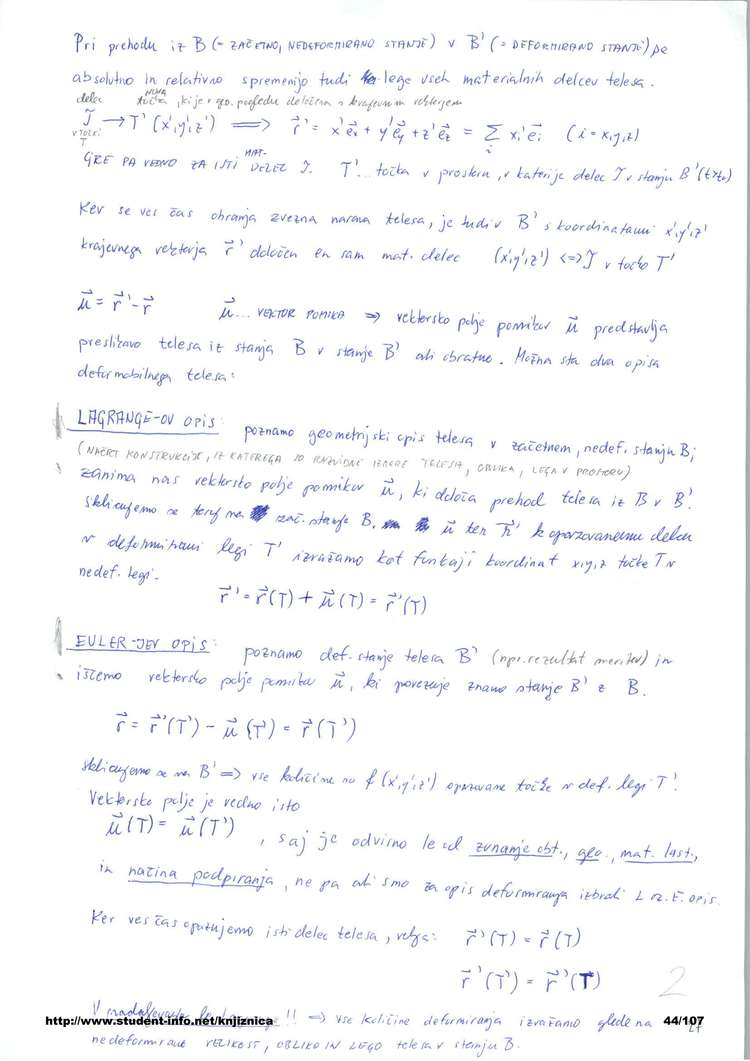 Pri prehodu iz B (= ZAČETNO, NEDEFORMIRANO STANJE) v B' (= DEFORMIRANO STANJE) pe
absolutno in relativno spremenijo tudi lege vseh materialnih delcev telesa.
delec NOVA točka, ki je v geo. pogledu določena s krajevnim vektorjem
T → T' (x',y',z') ⟹ r⃗' = x'e⃗x + y'e⃗y + z'e⃗z = Σ xi'e⃗i (i = x,y,z)
V TOČKI T i
GRE PA VEDNO ZA ISTI MAT. DELEC T. T'... točka v prostoru, v kateri je delec T v stanju B' (t>t₀)
Ker se ves čas ohranja zvezna narava telesa, je tudi v B' s koordinatami x',y',z'
krajevnega vektorja r⃗' določen en sam mat. delec (x',y',z') <=> T v točko T'
u⃗ = r⃗' - r⃗ u⃗... VEKTOR POMIKA ⇒ vektorsko polje pomikov u⃗ predstavlja
preslikavo telesa iz stanja B v stanje B' ali obratno. Možna sta dva opisa
deformabilnega telesa:
LAGRANGE-OV OPIS: poznamo geometrijski opis telesa v začetnem, nedef. stanju B;
(NAČRT KONSTRUKCIJE, IZ KATEREGA SO RAZVIDNE IZMERE TELESA, OBLIKA, LEGA V PROSTORU)
zanima nas vektorsko polje pomikov u⃗, ki določa prehod telesa iz B v B'.
Sklicujemo se torej na zač. stanje B, u⃗ ter r⃗' k opazovanemu delcu
v deformirani legi T' izražamo kot funkciji koordinat x,y,z točke T v
nedef. legi.
r⃗' = r⃗(T) + u⃗(T) = r⃗'(T)
EULER-JEV OPIS: poznamo def. stanje telesa B' (npr. rezultat meritev) in
iščemo vektorsko polje pomikov u⃗, ki povezuje znano stanje B' z B.
r⃗ = r⃗'(T') - u⃗(T') = r⃗(T')
Sklicujemo se na B' => vse količine so f(x',y',z') opazovane točke v def. legi T'.
Vektorsko polje je vedno isto
u⃗(T) = u⃗(T') , saj je odvisno le od zunanje obt., geo., mat. last.,
in načina podpiranja, ne pa ali smo za opis deformiranja izbrali L oz. E. opis.
Ker ves čas opazujemo isti delec telesa, velja: r⃗'(T) = r⃗(T)
r⃗'(T') = r⃗'(T)
2
V nadaljevanju !! => vse količine deformiranja izražamo glede na
http://www.student-info.net/knjiznica 44/107
nedeformirano VELIKOST, OBLIKO IN LEGO telesa v stanju B.